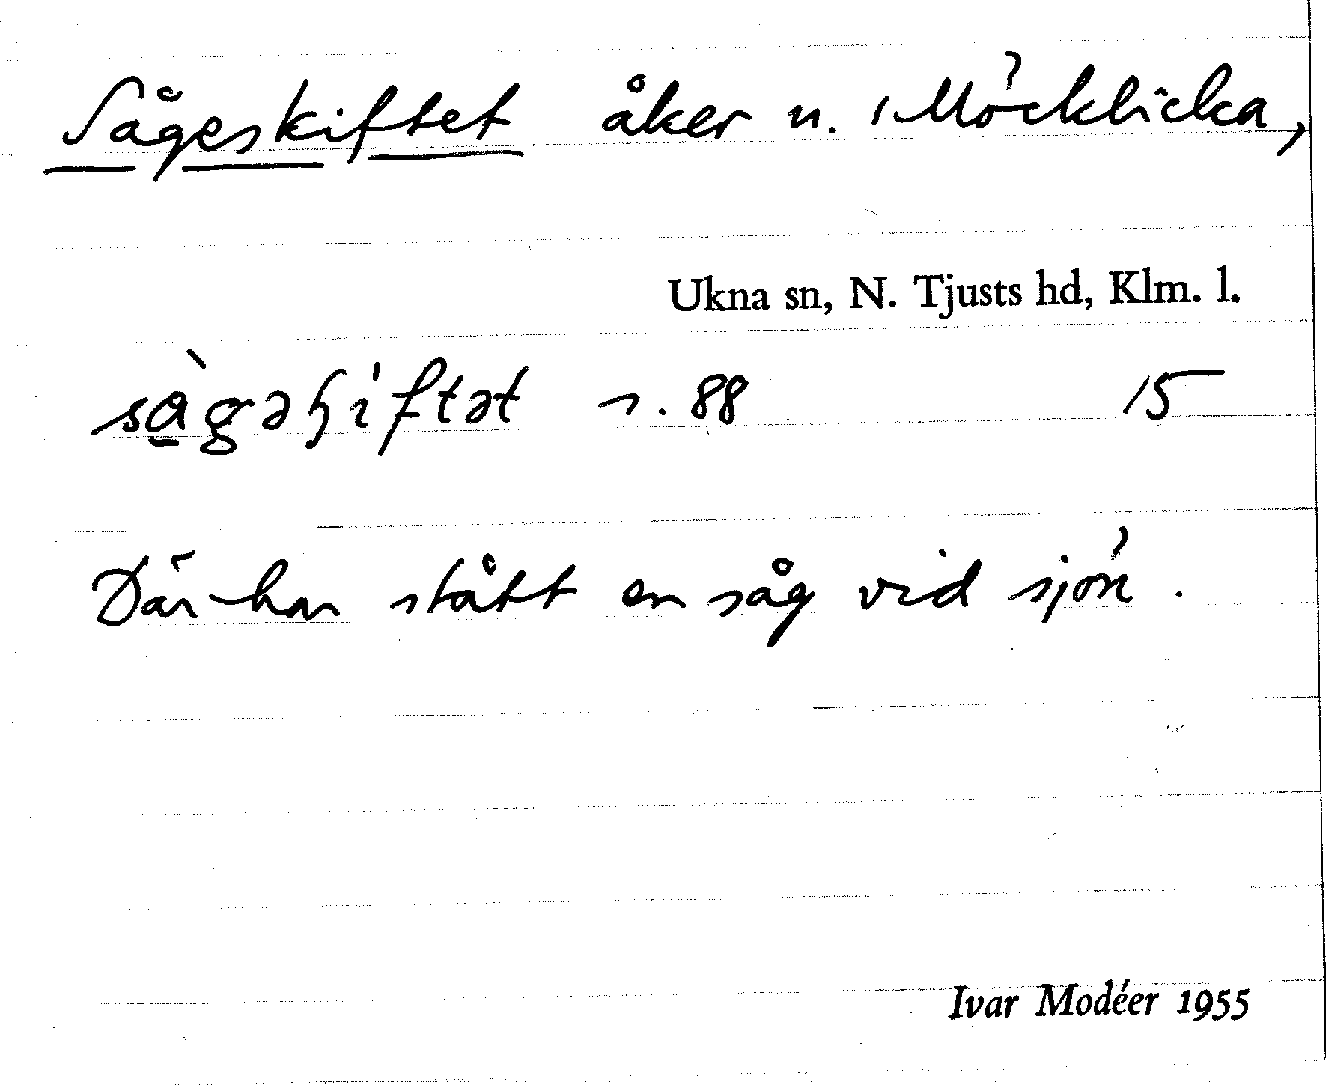 Sågeskiftet åker u. Möcklicka,
Ukna sn, N. Tjusts hd, Klm. l.
sàgəɧiftət s. 88 15
Där har stått en såg vid sjön.
Ivar Modéer 1955